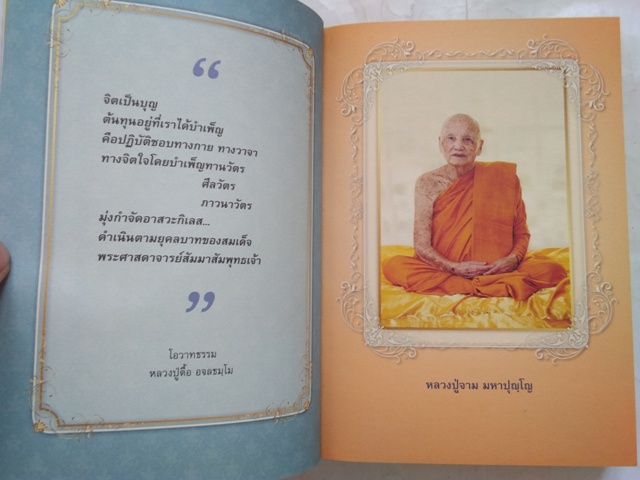 “
จิตเป็นบุญ
ต้นทุนอยู่ที่เราได้บำเพ็ญ
คือปฏิบัติชอบทางกาย ทางวาจา
ทางจิตใจโดยบำเพ็ญทานวัตร
ศีลวัตร
ภาวนาวัตร
มุ่งกำจัดอาสวะกิเลส...
ดำเนินตามยุคลบาทของสมเด็จ
พระศาสดาจารย์สัมมาสัมพุทธเจ้า
”
โอวาทธรรม
หลวงปู่ตื้อ อจลธมฺโม
หลวงปู่จาม มหาปุญฺโญ